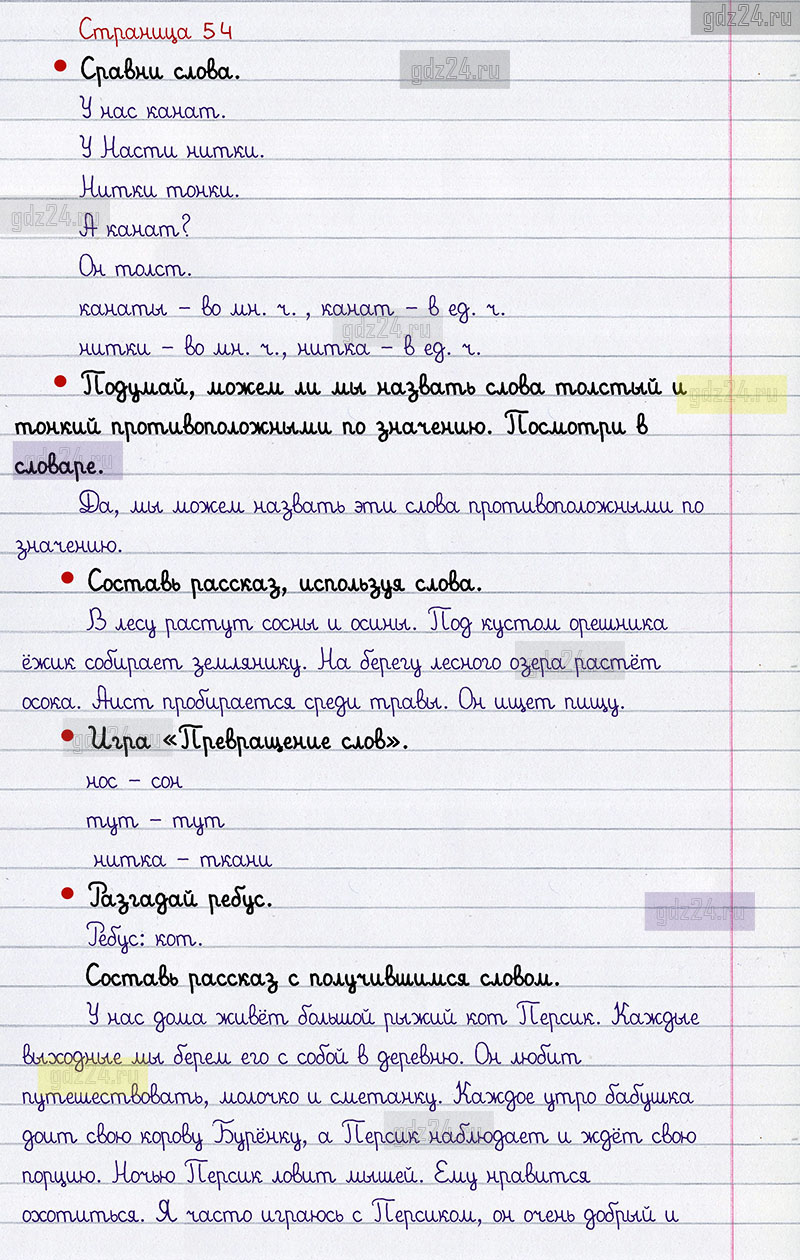 Страница 54
gdz24.ru
• Сравни слова.
gdz24.ru
У нас канат.
У Насти нитки.
Нитки тонки.
gdz24.ru
А канат?
Он толст.
канаты – во мн. ч. , канат – в ед. ч.
gdz24.ru
нитки – во мн. ч., нитка – в ед. ч.
• Подумай, можем ли мы назвать слова толстый и
gdz24.ru
тонкий противоположными по значению. Посмотри в
gdz24.ru
словаре.
Да, мы можем назвать эти слова противоположными по
значению.
• Составь рассказ, используя слова.
В лесу растут сосны и осины. Под кустом орешника
ёжик собирает землянику. На берегу лесного озера растёт
gdz24.ru
осока. Аист пробирается среди травы. Он ищет пищу.
• Игра «Превращение слов».
gdz24.ru
нос – сон
тут – тут
нитка – ткани
• Разгадай ребус.
gdz24.ru
Ребус: кот.
Составь рассказ с получившимся словом.
У нас дома живёт большой рыжий кот Персик. Каждые
выходные мы берем его с собой в деревню. Он любит
gdz24.ru
путешествовать, молочко и сметанку. Каждое утро бабушка
доит свою корову Бурёнку, а Персик наблюдает и ждёт свою
gdz24.ru
порцию. Ночью Персик ловит мышей. Ему нравится
охотиться. Я часто играюсь с Персиком, он очень добрый и